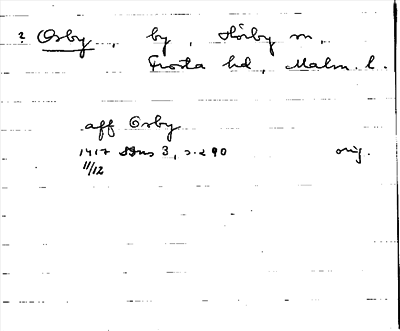 ? Osby, by, Hörby sn,
Frosta hd, Malm. l.
aff Osby
1417 SDns 3, s. 290 orig.
11/12